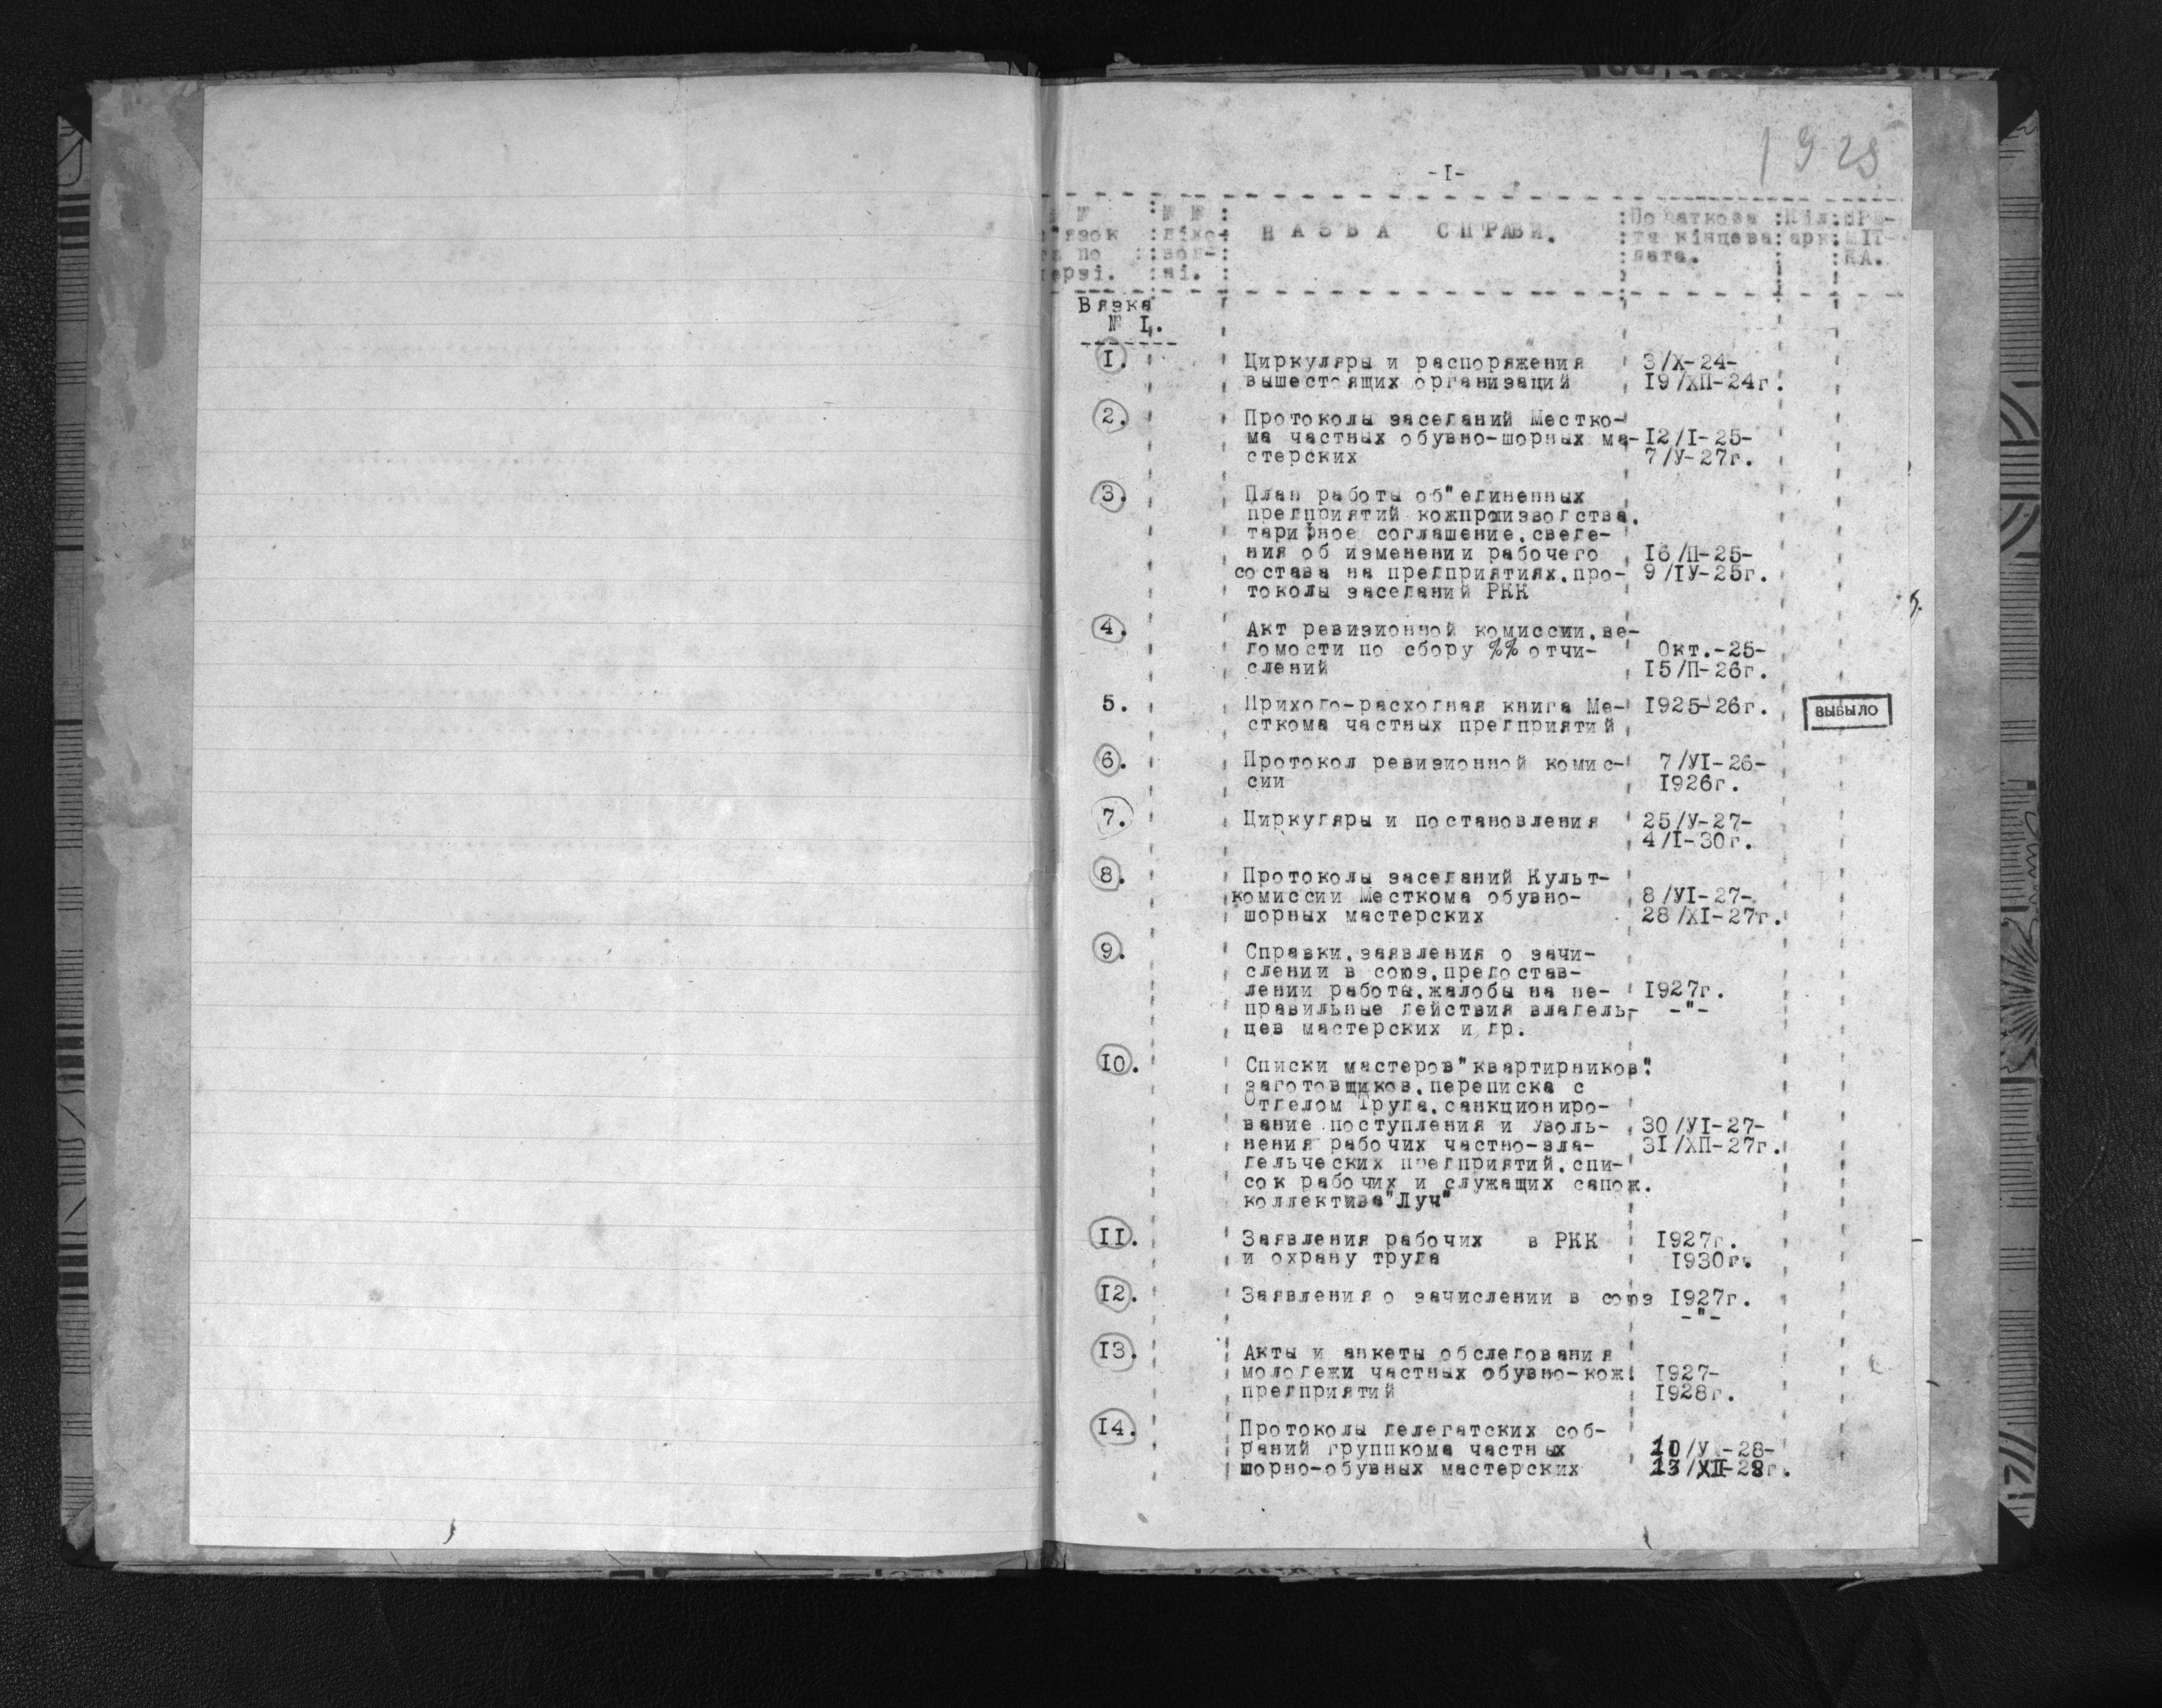 1925
-I-
№ :№ № : Початкова :Кіл:ПРИ-
в"язок :діло- НАЗВА СПРАВИ. :та кінцева:арк:МІТ-
та по :вод- :дата. :КА.
черзі. :ні.
Вязка
№ I.
I. Циркуляры и распоряжения 3/X-24-
вышестоящих организаций 19/ХП-24г.
2. Протоколы заседаний Местко-
ма частных обувно-шорных ма- 12/I-25-
стерских 7/У-27г.
3. План работы об"единенных
предприятий кожпроизводства,
тарифное соглашение,сведе-
ния об изменении рабочего 16/П-25-
состава на предприятиях,про- 9/IУ-25г.
токолы заседаний РКК
4. Акт ревизионной комиссии,ве-
домости по сбору %% отчи- Окт.-25-
слений 15/П-26г.
5. Приходо-расходная книга Ме- 1925-26г. ВЫБЫЛО
сткома частных предприятий
6. Протокол ревизионной комис- 7/УI-26-
сии 1926г.
7. Циркуляры и постановления 25/У-27-
4/I-30г.
8. Протоколы заседаний Культ-
комиссии Месткома обувно- 8/УI-27-
шорных мастерских 28/XI-27г.
9. Справки,заявления о зачи-
слении в союз,предостав-
лении работы,жалобы на не- 1927г.
правильные действия владель- -"-
цев мастерских и др.
10. Списки мастеров"квартирников",
заготовщиков,переписка с
Отделом Труда,санкциониро-
вание поступления и уволь- 30/УI-27-
нения рабочих частно-вла- 31/ХП-27г.
дельческих предприятий,спи-
сок рабочих и служащих сапож.
коллектива"Луч"
11. Заявления рабочих в РКК 1927г.
и охрану труда 1930гг.
12. Заявления о зачислении в союз 1927г.
-"-
13. Акты и анкеты обследования
молодежи частных обувно-кож. 1927-
предприятий 1928г.
14. Протоколы делегатских соб-
раний группкома частных 10/У -28-
шорно-обувных мастерских 13/XII-28г.